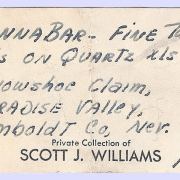 NNABAR - FINE
S ON QUARTZ XLS
OWSHOE CLAIM,
RADISE VALLEY,
MBOLDT CO, NEV.
Private Collection of
SCOTT J. WILLIAMS